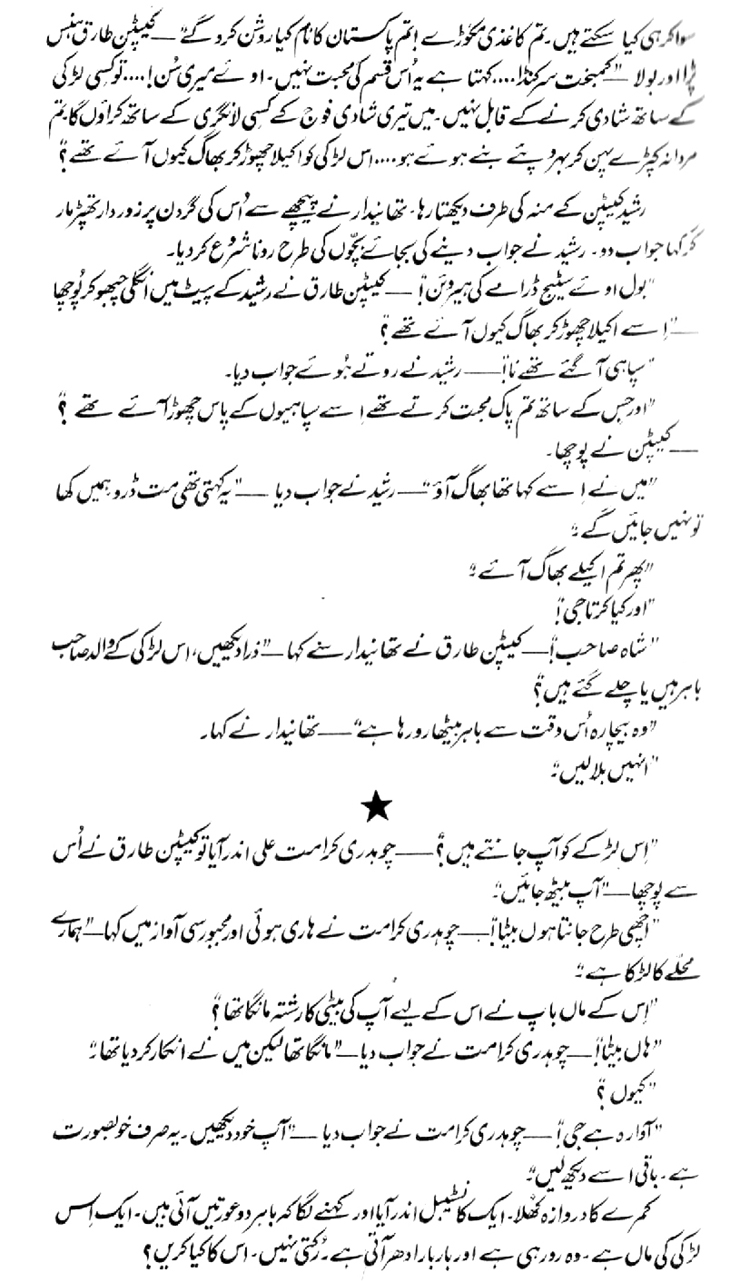 سوا کر ہی کیا سکتے ہیں۔ تم کاغذی مکوڑے! تم پاکستان کا نام کیا روشن کرو گے"— کیپٹن طارق ہنس
پڑا اور بولا "کمبخت سرکنڈا.... کہتا ہے یہ اُس قسم کی محبت نہیں۔ اوئے میری سُن!.... تو کسی لڑکی
کے ساتھ شادی کرنے کے قابل نہیں۔ میں تیری شادی فوج کے کسی لانگری کے ساتھ کراؤں گا۔ تم
مردانہ کپڑے پہن کر بہروپئے بنے ہوئے ہو.... اس لڑکی کو اکیلا چھوڑ کر بھاگ کیوں آئے تھے؟"
رشید کیپٹن کے منہ کی طرف دیکھتا رہا۔ تھانیدار نے پیچھے سے اُس کی گردن پر زور دار تھپڑ مار
کر کہا جواب دو۔ رشید نے جواب دینے کی بجائے بچّوں کی طرح رونا شروع کر دیا۔
"بول اوئے سٹیج ڈرامے کی ہیروئن!"— کیپٹن طارق نے رشید کے پیٹ میں انگلی چبھو کر پُوچھا
—"اِسے اکیلا چھوڑ کر بھاگ کیوں آئے تھے؟"
"سپاہی آ گئے تھے نا!"— رشید نے روتے ہُوئے جواب دیا۔
"اور جس کے ساتھ تم پاک محبت کرتے تھے اِسے سپاہیوں کے پاس چھوڑ آئے تھے؟"
— کیپٹن نے پوچھا۔
"میں نے اِسے کہا تھا بھاگ آؤ"— رشید نے جواب دیا —"یہ کہتی تھی مت ڈرو ہمیں کھا
تو نہیں جائیں گے۔"
"پھر تم اکیلے بھاگ آئے۔"
"اور کیا کرتا جی!"
"شاہ صاحب!"— کیپٹن طارق نے تھانیدار سے کہا —"ذرا دیکھیں، اس لڑکی کے والد صاحب
باہر ہیں یا چلے گئے ہیں؟"
"وہ بیچارہ اُس وقت سے باہر بیٹھا رو رہا ہے"— تھانیدار نے کہا۔
"انہیں بلا لیں۔"
"اِس لڑکے کو آپ جانتے ہیں؟"— چوہدری کرامت علی اندر آیا تو کیپٹن طارق نے اُس
سے پوچھا —"آپ بیٹھ جائیں۔"
"اچھی طرح جانتا ہوں بیٹا!"— چوہدری کرامت نے ہاری ہوئی اور مجبور سی آواز میں کہا —"ہمارے
محلّے کا لڑکا ہے۔"
"اِس کے ماں باپ نے اس کے لیے آپ کی بیٹی کا رشتہ مانگا تھا؟"
"ہاں بیٹا!"— چوہدری کرامت نے جواب دیا —"مانگا تھا لیکن میں نے انکار کر دیا تھا۔"
"کیوں؟"
"آوارہ ہے جی!"— چوہدری کرامت نے جواب دیا —"آپ خود دیکھیں۔ یہ صرف خوبصورت
ہے۔ باقی اسے دیکھ لیں۔"
کمرے کا دروازہ کھُلا۔ ایک کانسٹیبل اندر آیا اور کہنے لگا کہ باہر دو عورتیں آئی ہیں۔ ایک اِس
لڑکی کی ماں ہے۔ وہ رو رہی ہے اور بار بار ادھر آتی ہے۔ رُکتی نہیں۔ اس کا کیا کریں؟